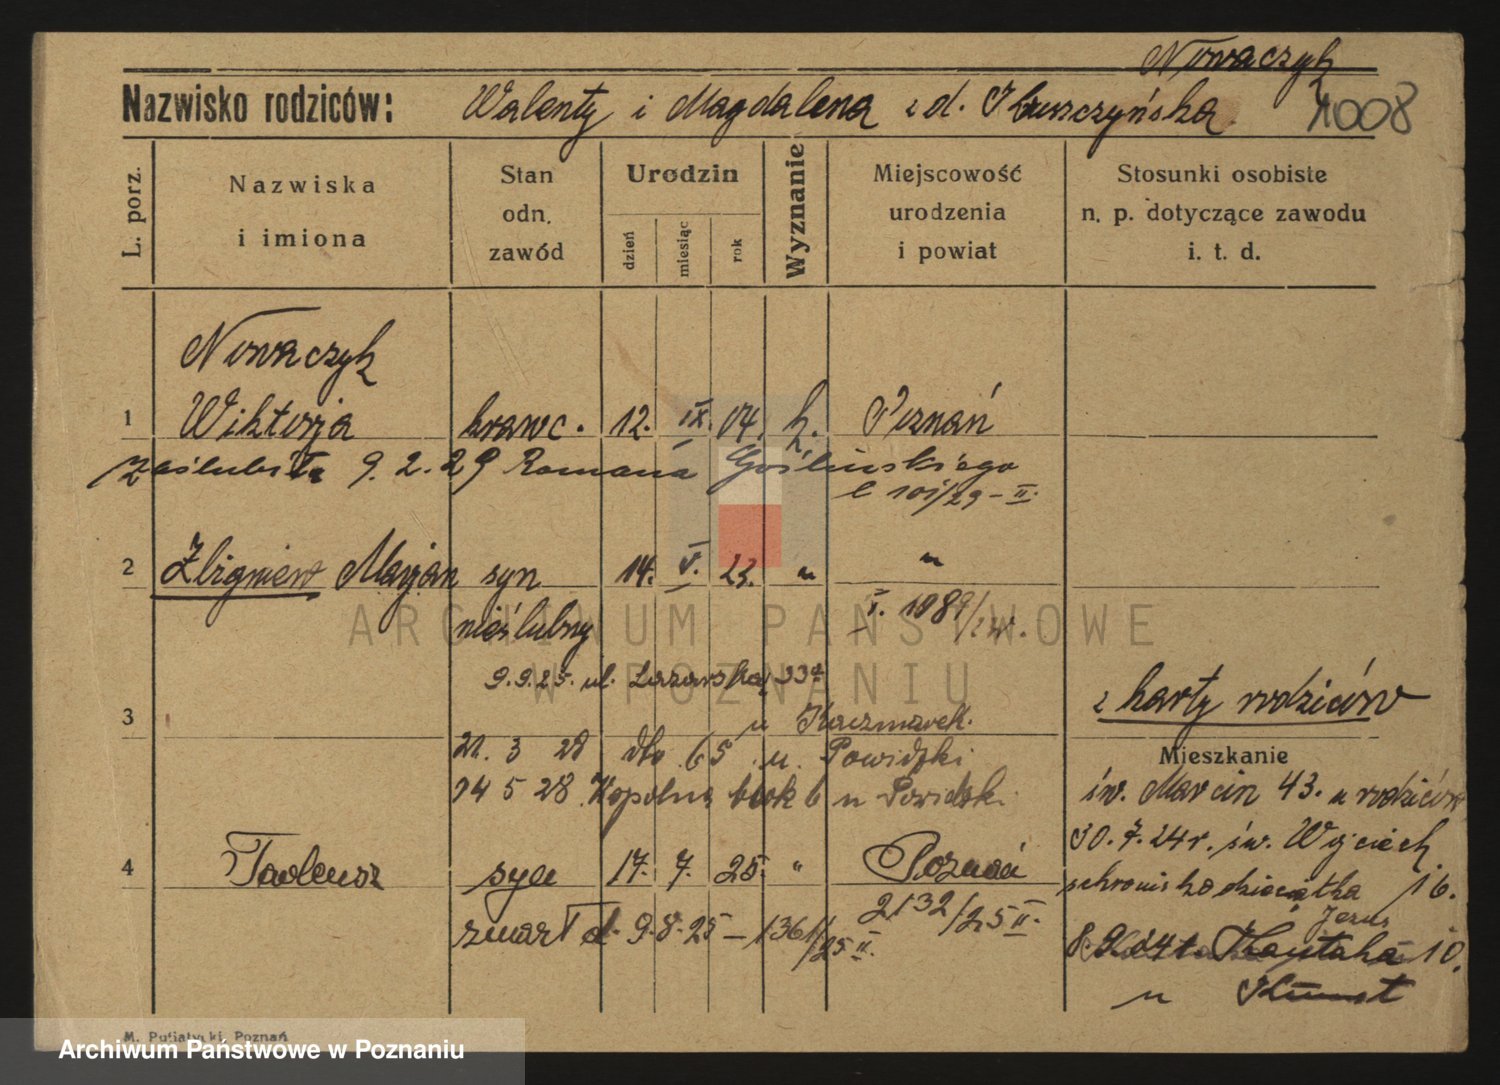 Nowaczyk
Nazwisko rodziców: Walenty i Magdalena z d. 1008
L. porz.
Nazwiska i imiona
Stan odn. zawód
Urodzin
dzień miesiąc rok
Wyznanie
Miejscowość urodzenia i powiat
Stosunki osobiste n. p. dotyczące zawodu i. t. d.
Nowaczyk
1 Wiktorja krawc. 12. IX. 04. k. Poznań
zaślubiła 9. 2. 29 Romana Goślińskiego
2 Zbigniew Marjan syn 14. V. 23. " "
nieślubny
ARCHIWUM PAŃSTWOWE
W POZNANIU
9. 9. 25. ul. Łazarska
u Kaczmarek.
3
z karty rodziców
21. 3 28 dto 65 u. Powidzki
Mieszkanie
14 5 28 Kopolna blok 6 u Powidzki
św. Marcin 43. u rodziców
30. 7. 24 r. św. Wojciech
4 Tadeusz syn 17. 7. 25. " Poznań
schronisko dzieciątka 16.
Jezus
2132/25 II.
zmarł d. 9. 8. 25 – 1361/25 II.
10.
u
M. Putiatycki, Poznań
Archiwum Państwowe w Poznaniu